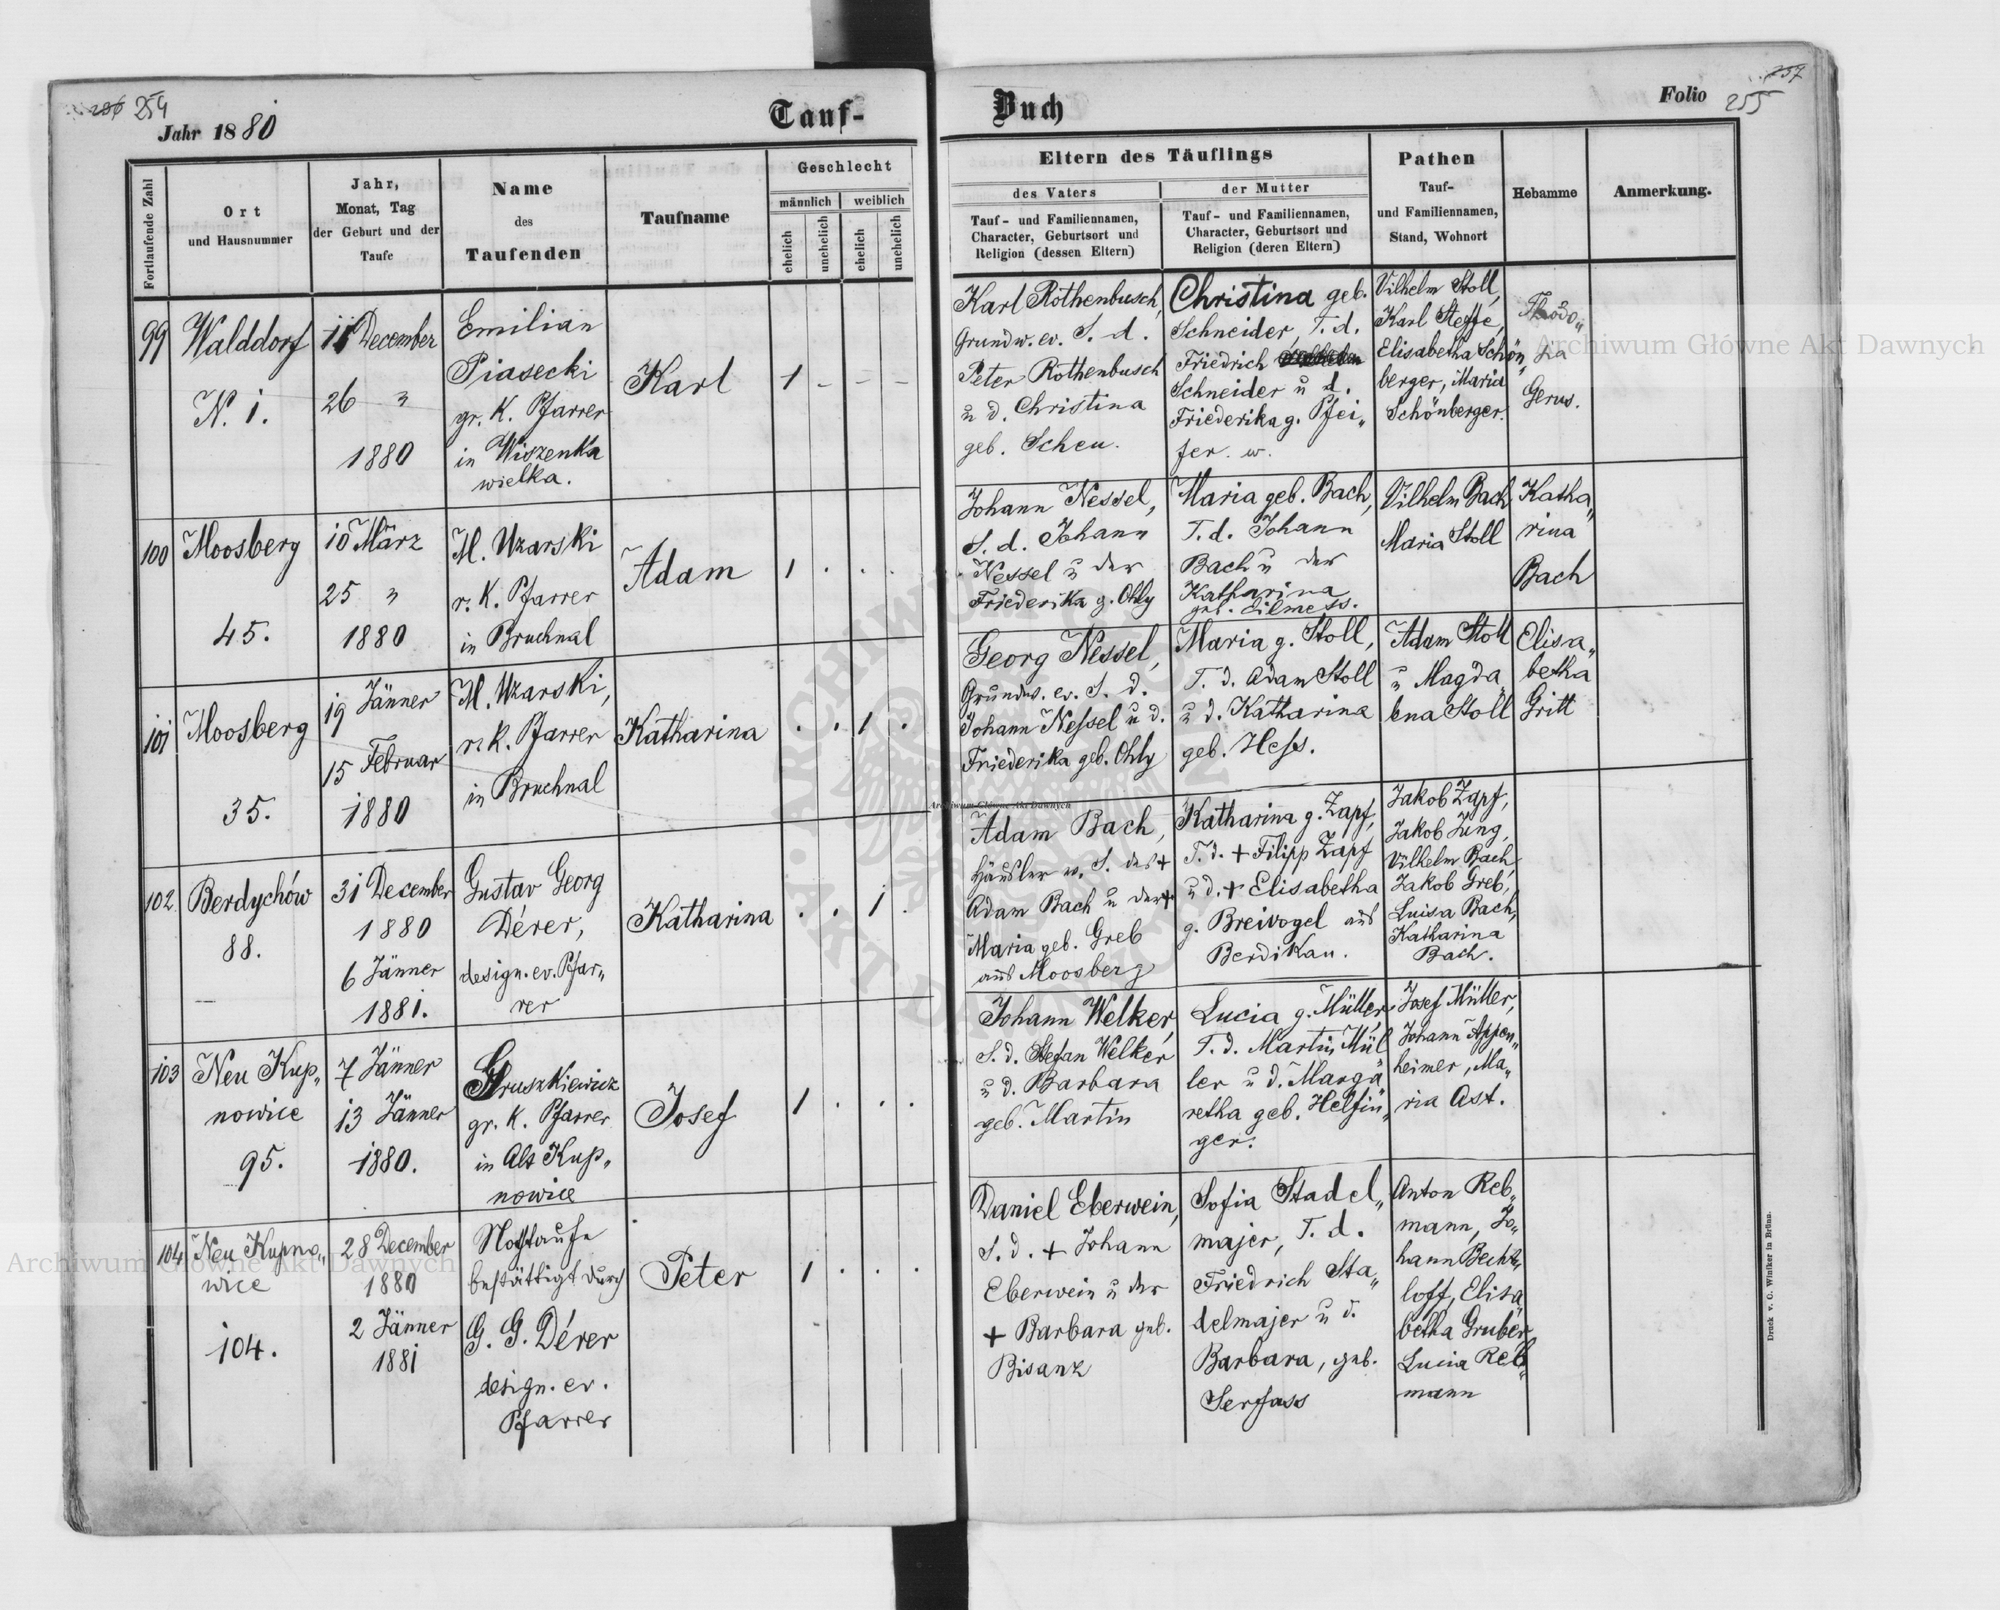 254
Jahr 1880
Tauf-
Fortlaufende Zahl
Ort
und Hausnummer
Jahr,
Monat, Tag
der Geburt und der
Taufe
Name
des
Taufenden
Taufname
Geschlecht
männlich
weiblich
ehelich
unehelich
ehelich
unehelich
99
Walddorf
N. 1.
11 December
26 "
1880
Emilian
Piasecki
gr. K. Pfarrer
in Wiszenka
wielka.
Karl
1 - - -
100
Moosberg
45.
10 März
25 "
1880
M. Uzarski
r. K. Pfarrer
in Bruchnal
Adam
1 . . .
101
Moosberg
35.
19 Jänner
15 Februar
1880
M. Uzarski,
r. k. Pfarrer
in Bruchnal
Katharina
. . 1 .
102
Berdychów
88.
31 December
1880
6 Jänner
1881.
Gustav Georg
Dérer,
design. ev. Pfar„
rer
Katharina
. . 1 .
103
Neu Kup„
nowice
95.
7 Jänner
13 Jänner
1880.
Gruszkiewicz
gr. K. Pfarrer
in Alt Kup„
nowice
Josef
1 . . .
104
Neu Kupno„
wice
104.
28 December
1880
2 Jänner
1881
Nottaufe
bestättigt durch
G. G. Dérer
design. ev.
Pfarrer
Peter
1 . . .
Buch
Folio
237
255
Eltern des Täuflings
des Vaters
Tauf- und Familiennamen,
Character, Geburtsort und
Religion (dessen Eltern)
der Mutter
Tauf- und Familiennamen,
Character, Geburtsort und
Religion (deren Eltern)
Pathen
Tauf-
und Familiennamen,
Stand, Wohnort
Hebamme
Anmerkung.
Karl Rothenbusch,
Grundw. ev. S. d.
Peter Rothenbusch
u d. Christina
geb. Scheu.
Christina geb.
Schneider, T. d.
Friedrich
Schneider u d.
Friederika g. Pfei„
fer. w.
Vilhelm Stoll,
Karl Steffe,
Elisabetha Schön„
berger, Maria
Schönberger.
Gerus.
Johann Nessel,
S. d. Johann
Nessel u der
Friederika g. Ohly
Maria geb. Bach,
T. d. Johann
Bach u der
Katharina
Vilhelm Bach
Maria Stoll
Katha„
rina
Bach
Georg Nessel,
Grundw. ev. S. d.
Johann Nessel u d.
Friederika geb. Ohly
Maria g. Stoll,
T. d. Adam Stoll
u d. Katharina
geb. Hess.
Adam Stoll
u Magda„
lena Stoll
Elisa„
betha
Gritt
Adam Bach,
Häusler w. S. des +
Adam Bach u der +
Maria geb. Greb
aus Moosberg
Katharina g. Zapf,
T. d. + Filipp Zapf
u d. + Elisabetha
g. Breivogel aus
Berdikau.
Jakob Zapf,
Jakob Jung,
Vilhelm Bach,
Jakob Greb,
Luisa Bach,
Katharina
Bach.
Johann Welker,
S. d. Stefan Welker
u d. Barbara
geb. Martin
Lucia g. Müller,
T. d. Martin Mül
ler u d. Marga
retha geb. Helfin„
ger.
Josef Müller,
Johann Appen„
heimer, Ma„
ria Ast.
Daniel Eberwein,
S. d. + Johann
Eberwein u der
+ Barbara geb.
Bisanz
Sofia Stadel„
majer, T. d.
Friedrich Sta„
delmajer u d.
Barbara, geb.
Serfass
Anton Reb„
mann, Jo„
hann Becht„
loff, Elisa„
betha Gruber,
Lucia Reb„
mann
Druck v. C. Winiker in Brünn.
Archiwum Główne Akt Dawnych
Archiwum Główne Akt Dawnych
Archiwum Główne Akt Dawnych